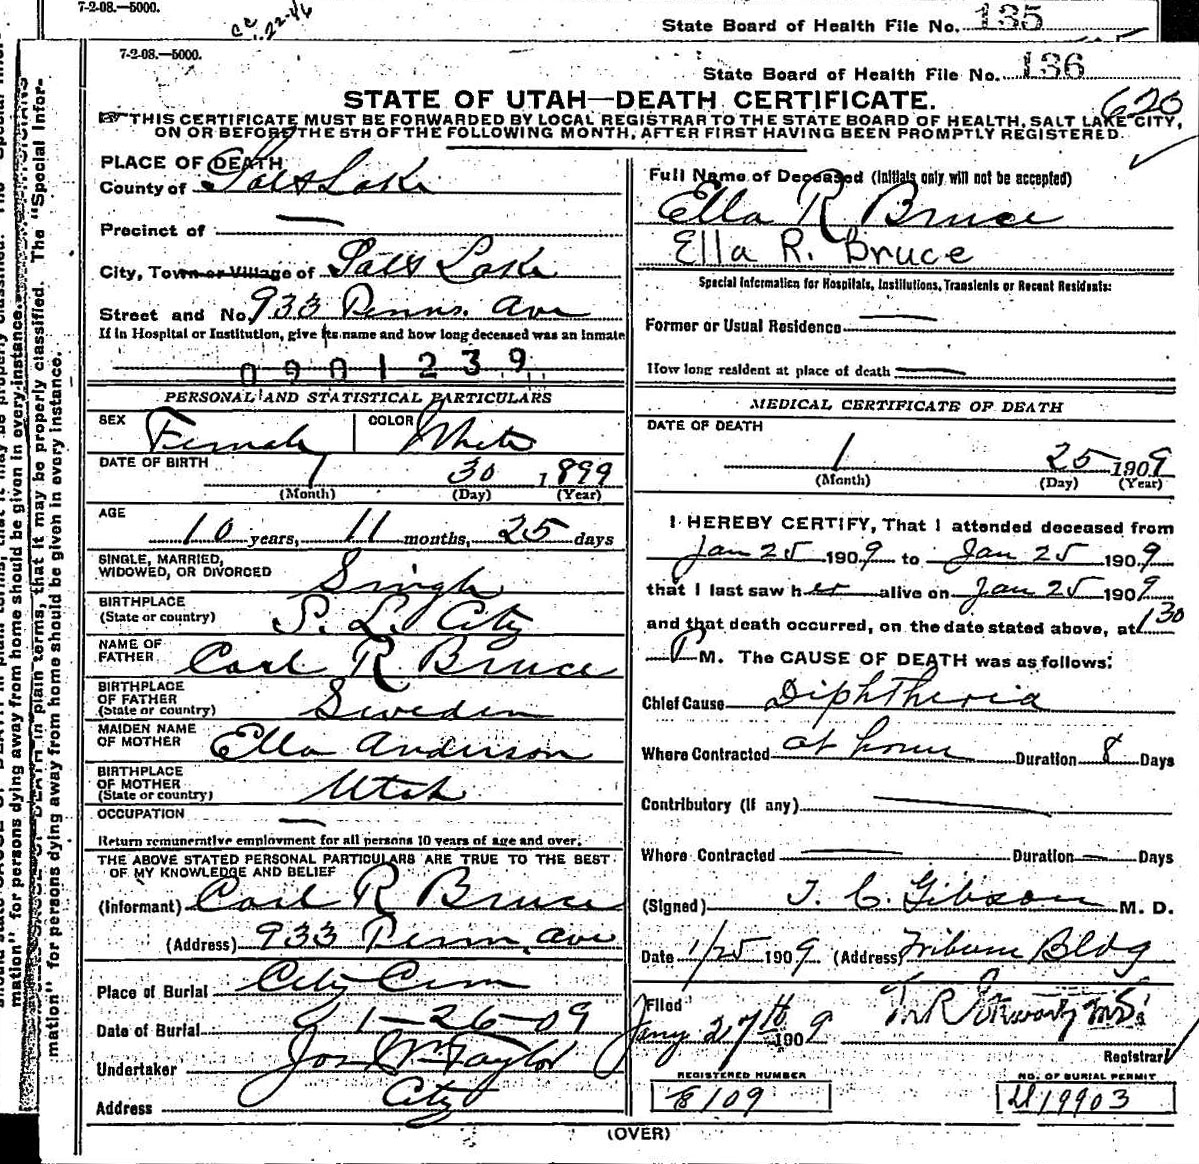 7-2-08.—5000.
State Board of Health File No. 135
7-2-08.—5000.
State Board of Health File No. 136
STATE OF UTAH—DEATH CERTIFICATE.
620
THIS CERTIFICATE MUST BE FORWARDED BY LOCAL REGISTRAR TO THE STATE BOARD OF HEALTH, SALT LAKE CITY,
ON OR BEFORE THE 5TH OF THE FOLLOWING MONTH, AFTER FIRST HAVING BEEN PROMPTLY REGISTERED.
PLACE OF DEATH
County of Salt Lake
Precinct of —
City, Town or Village of Salt Lake
Street and No. 933 Penns. Ave
If in Hospital or Institution, give its name and how long deceased was an inmate
0901239
PERSONAL AND STATISTICAL PARTICULARS
SEX Female COLOR White
DATE OF BIRTH 1 30 1899
(Month) (Day) (Year)
AGE
10 years, 11 months, 25 days
SINGLE, MARRIED,
WIDOWED, OR DIVORCED Single
BIRTHPLACE
(State or country) S. L. City
NAME OF
FATHER Carl R Bruce
BIRTHPLACE
OF FATHER
(State or country) Sweden
MAIDEN NAME
OF MOTHER Ella Anderson
BIRTHPLACE
OF MOTHER
(State or country) Utah
OCCUPATION —
Return remunerative employment for all persons 10 years of age and over.
THE ABOVE STATED PERSONAL PARTICULARS ARE TRUE TO THE BEST
OF MY KNOWLEDGE AND BELIEF
(Informant) Carl R Bruce
(Address) 933 Penn. Ave
Place of Burial City Cem
Date of Burial 1-26-09
Undertaker Jos Wm Taylor
Address City
Full Name of Deceased (Initials only will not be accepted)
Ella R Bruce
Ella R. Bruce
Special Information for Hospitals, Institutions, Transients or Recent Residents:
Former or Usual Residence —
How long resident at place of death —
MEDICAL CERTIFICATE OF DEATH
DATE OF DEATH
1 25 1909
(Month) (Day) (Year)
I HEREBY CERTIFY, That I attended deceased from
Jan 25 1909 to Jan 25 1909
that I last saw her alive on Jan 25 1909
and that death occurred, on the date stated above, at 1 30
P M. The CAUSE OF DEATH was as follows:
Chief Cause Diphtheria
Where Contracted at home Duration 8 Days
Contributory (If any) —
Where Contracted — Duration — Days
(Signed) T. C. Gibson M. D.
Date 1/25 1909 (Address) Tribune Bldg
Filed
Jany 27th 1909
Registrar
REGISTERED NUMBER
109
NO. OF BURIAL PERMIT
19903
(OVER)
mation" for persons dying away from home should be given in every instance.
mation" for persons dying away from home should be given in every instance.
in plain terms, that it may be properly classified. The "Special Infor-